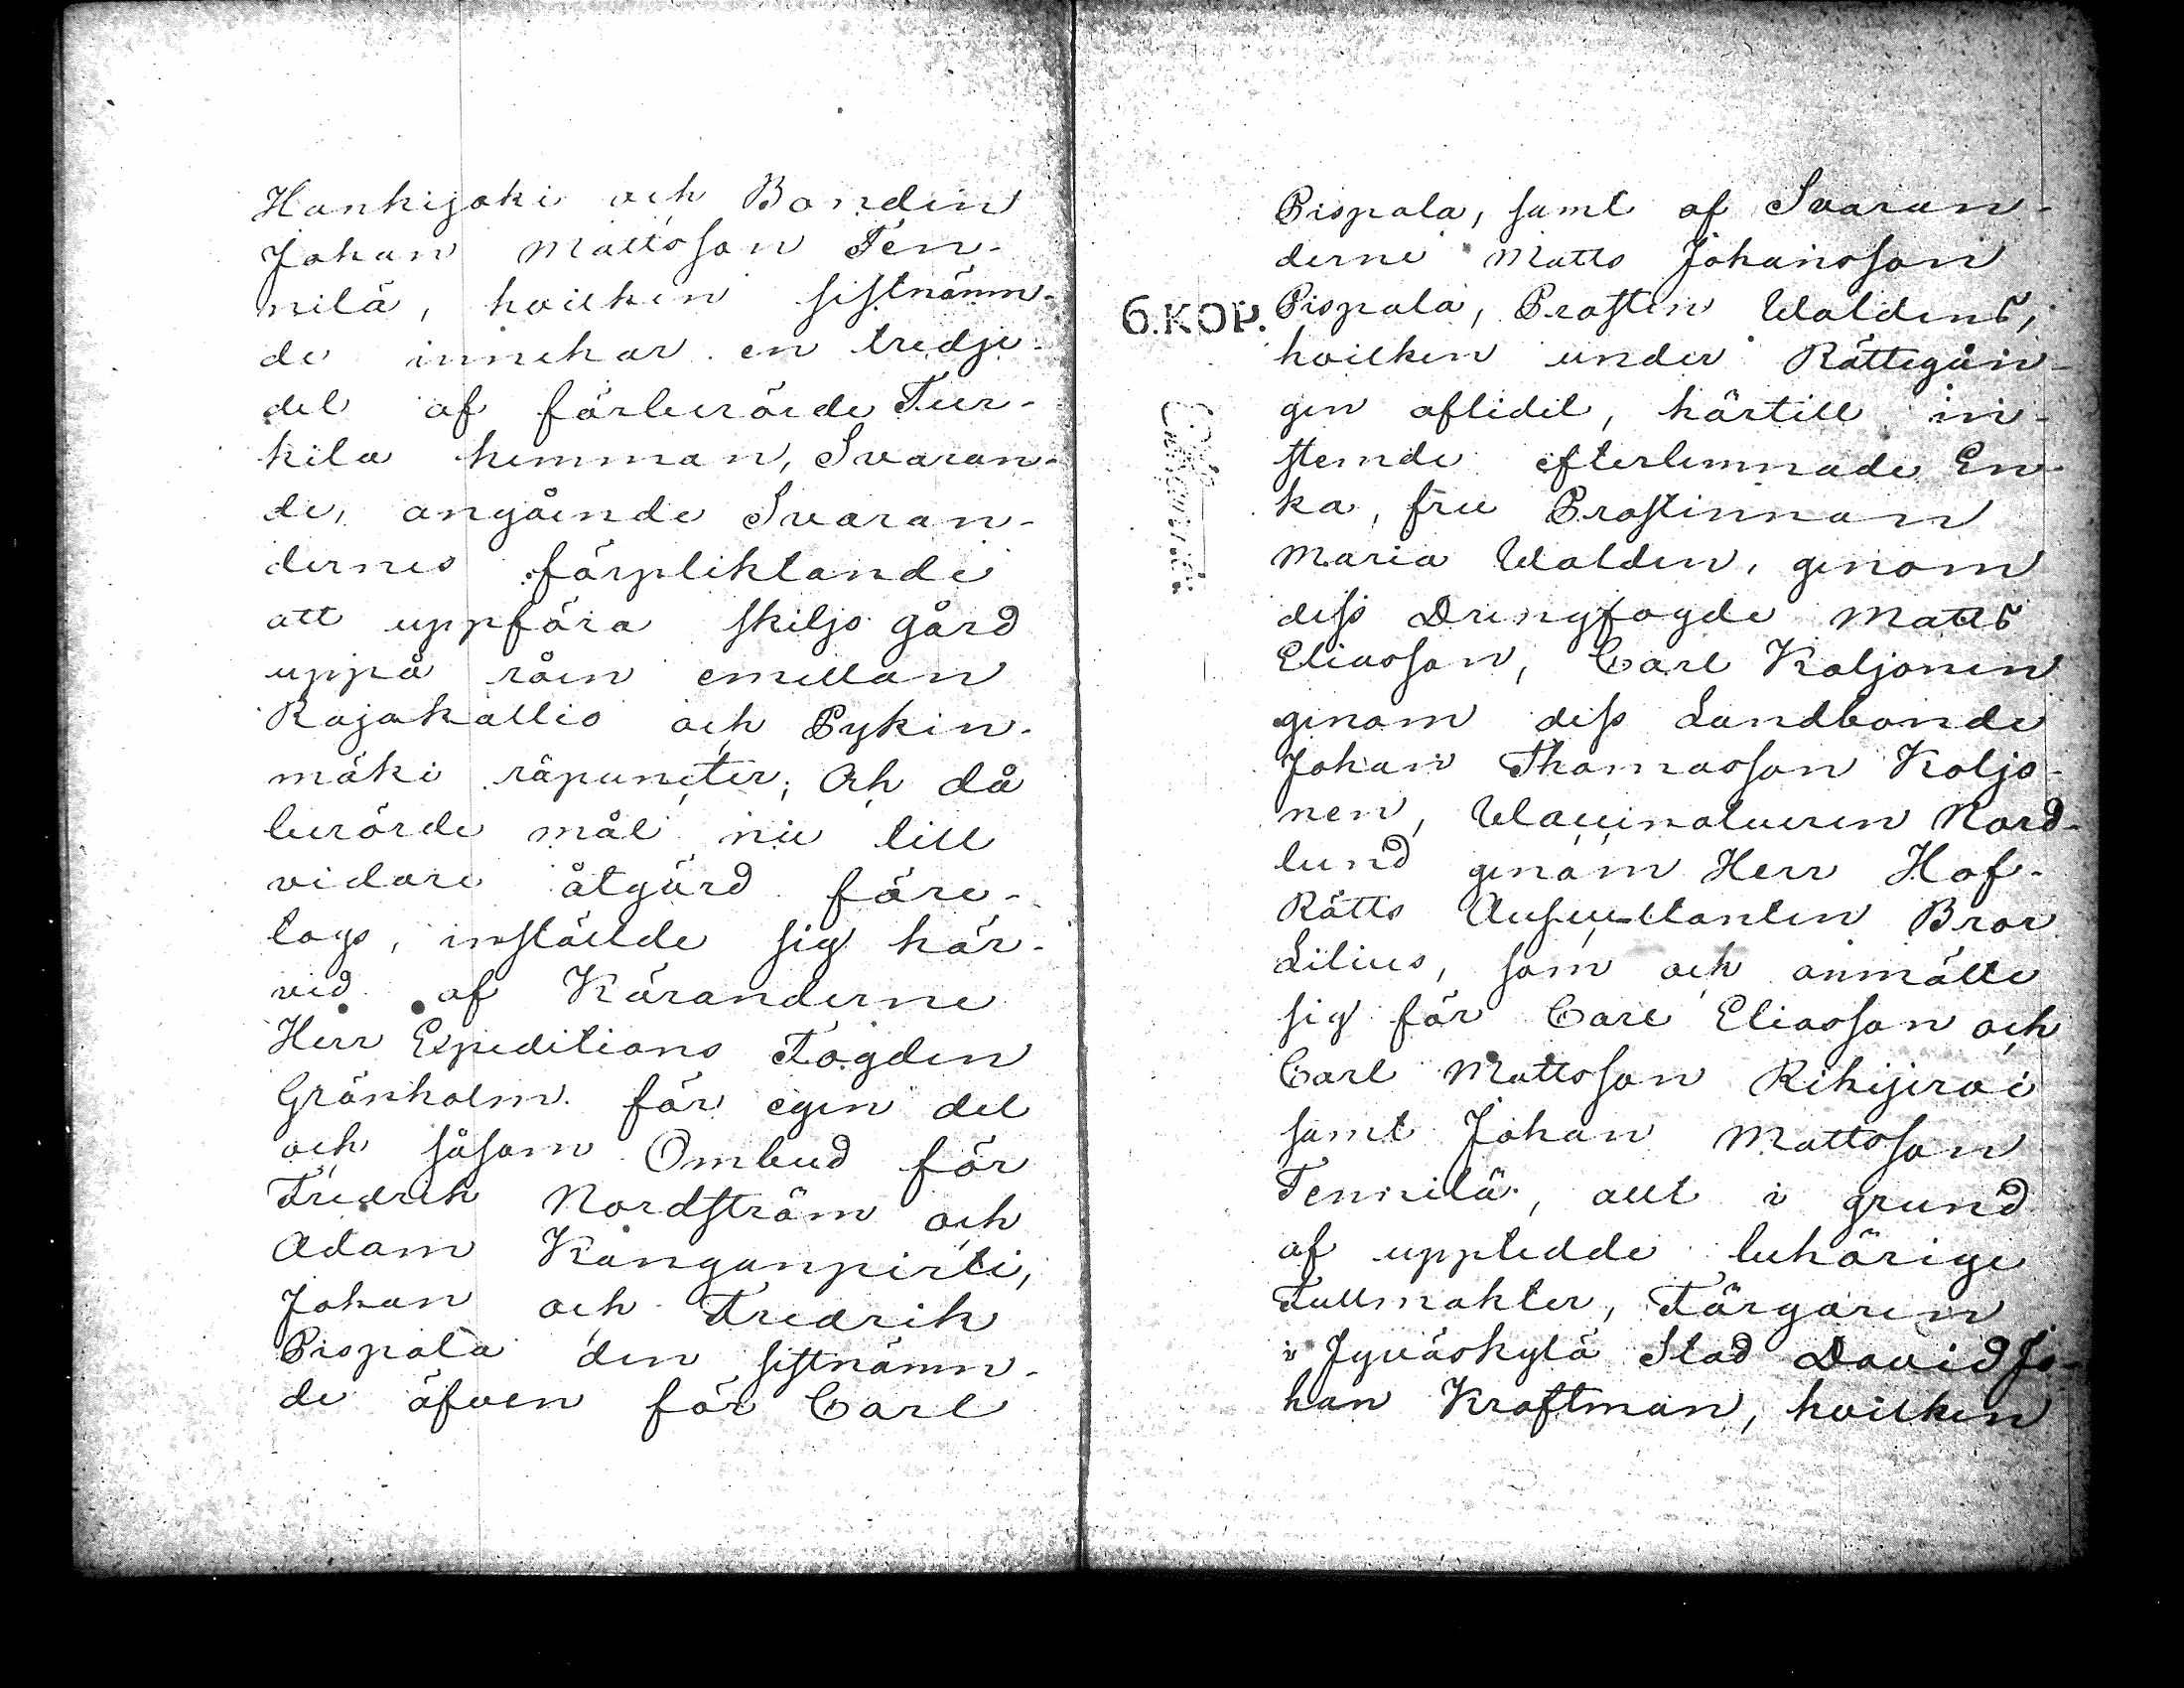 Hankijoki och Bonden
Johan Mattsson Ten-
nilä, hvilken sistnämn-
de innehar en tredje-
del af förberörde Tur-
kila hemman, Svaran-
de, angående Svaran-
dernes förpliktande
att uppföra skiljogård
uppå rån emellan
Rajakallio och Pykin-
mäki råpuncter; Och då
berörde mål nu till
vidare åtgärd före-
togs, instälde sig här-
vid af Käranderne
Herr Expeditions Fogden
Grönholm för egen del
och såsom Ombud för
Fredrik Nordström och
Adam Kanganpirti,
Johan och Fredrik
Pispala den sistnämn-
de äfven för Carl
Pispala, samt af Svaran-
derne Matts Johansson
6.KOP.
Pispala, Prosten Waldens,
hvilken under Rättegån-
gen aflidit, härtill in-
stemde efterlemnade En-
ka, fru Prostinnan
Maria Walden, genom
dess Drengfogde Matts
Eliasson, Carl Koljonen
genom dess Landbonde
Johan Thomasson Koljo-
nen, Nord-
lund genom Herr Hof-
Rätts Auscultanten Bror
Lilius, som och anmälte
sig för Carl Eliasson och
Carl Mattsson Rihijervi
samt Johan Mattsson
Tennilä, allt i grund
af uppledde behörige
Fullmakter, Färgaren
i Jyväskylä Stad David Jo-
han Kraftman, hvilken